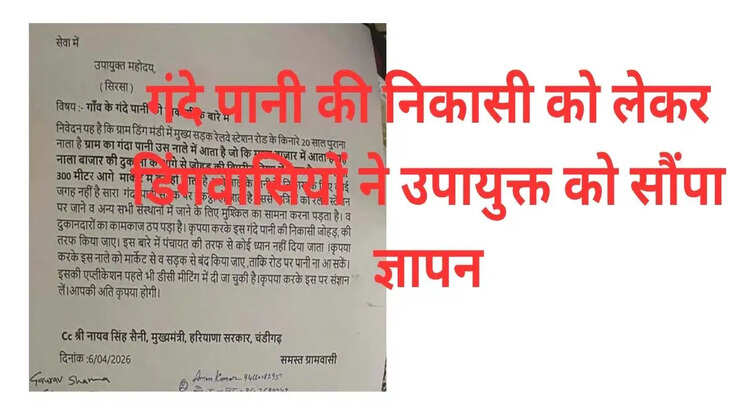 सेवा में
उपायुक्त महोदय,
( सिरसा )
विषय :- गाँव के गंदे पानी की बारे में
निवेदन यह है कि ग्राम डिंग मंडी में मुख्य सड़क रेलवे स्टेशन रोड के किनारे 20 साल पुराना
नाला है ग्राम का गंदा पानी उस नाले में आता है जो कि बाजार में आता है
नाला बाजार की दुकानों से जोहड़ की
300 मीटर आगे मार्केट में
जगह नहीं है सारा गंदा स्टेशन
पर जाने व अन्य सभी संस्थानों में जाने के लिए मुश्किल का सामना करना पड़ता है। व
दुकानदारों का कामकाज ठप पड़ा है। कृपया करके इस गंदे पानी की निकासी जोहड़ की
तरफ किया जाए। इस बारे में पंचायत की तरफ से कोई ध्यान नहीं दिया जाता।कृपया
करके इस नाले को मार्केट से व सड़क से बंद किया जाए ,ताकि रोड पर पानी ना आ सकें।
इसकी एप्लीकेशन पहले भी डीसी मीटिंग में दी जा चुकी है।कृपया करके इस पर संज्ञान
लें।आपकी अति कृपया होगी।
Cc श्री नायब सिंह सैनी, मुख्यमंत्री, हरियाणा सरकार, चंडीगढ़
दिनांक :6/04/2026 समस्त ग्रामवासी
Gourav Sharma
गंदे पानी की निकासी को लेकर
डिंगवासियों ने उपायुक्त को सौंपा
ज्ञापन